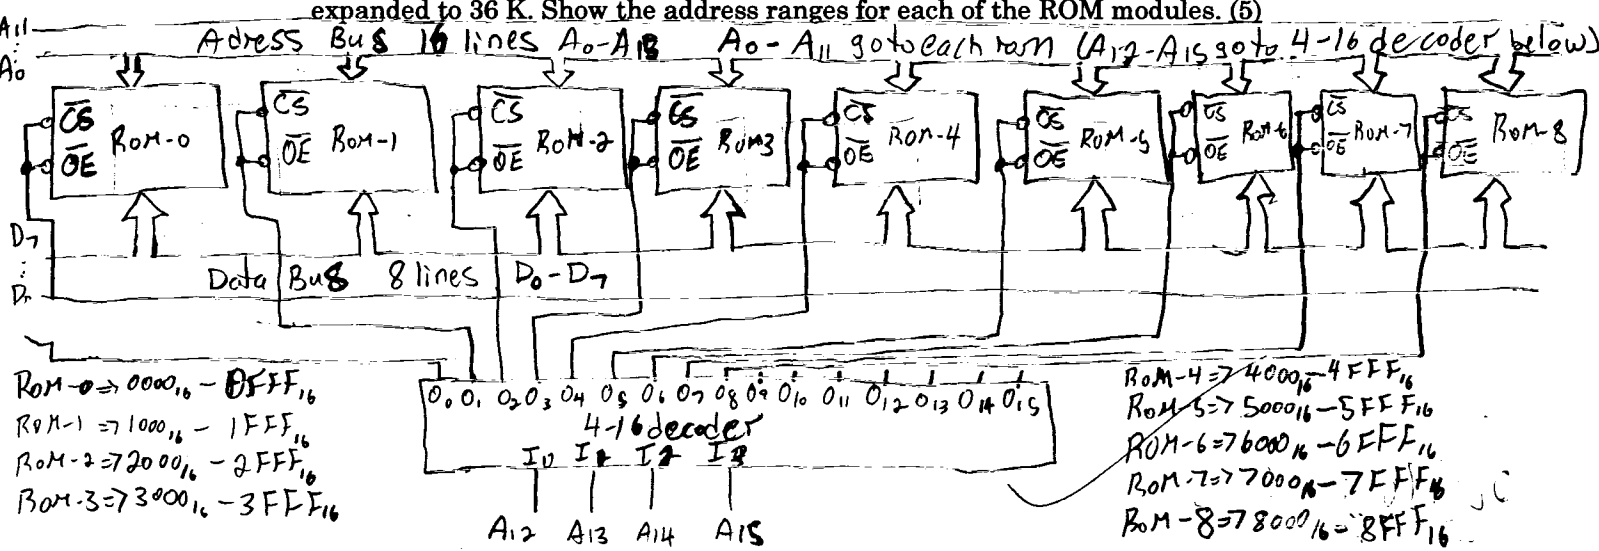 expanded to 36 K. Show the address ranges for each of the ROM modules. (5)
A11
Adress Bus 16 lines A0-A15 A0-A11 go to each rom (A12-A15 go to 4-16 decoder below)
A0
CS CS CS CS CS CS CS CS CS
ROM-0 ROM-1 ROM-2 ROM3 ROM-4 ROM-5 ROM-6 ROM-7 ROM-8
OE OE OE OE OE OE OE OE OE
D7
Data Bus 8 lines D0-D7
ROM-0 => 000016 - 0FFF16
ROM-1 => 100016 - 1FFF16
ROM-2 => 200016 - 2FFF16
ROM-3 => 300016 - 3FFF16
O0 O1 O2 O3 O4 O5 O6 O7 O8 O9 O10 O11 O12 O13 O14 O15
4-16 decoder
I0 I1 I2 I3
A12 A13 A14 A15
ROM-4 => 400016-4FFF16
ROM-5 => 500016-5FFF16
ROM-6 => 600016-6FFF16
ROM-7 => 700016-7FFF16
ROM-8 => 800016-8FFF16